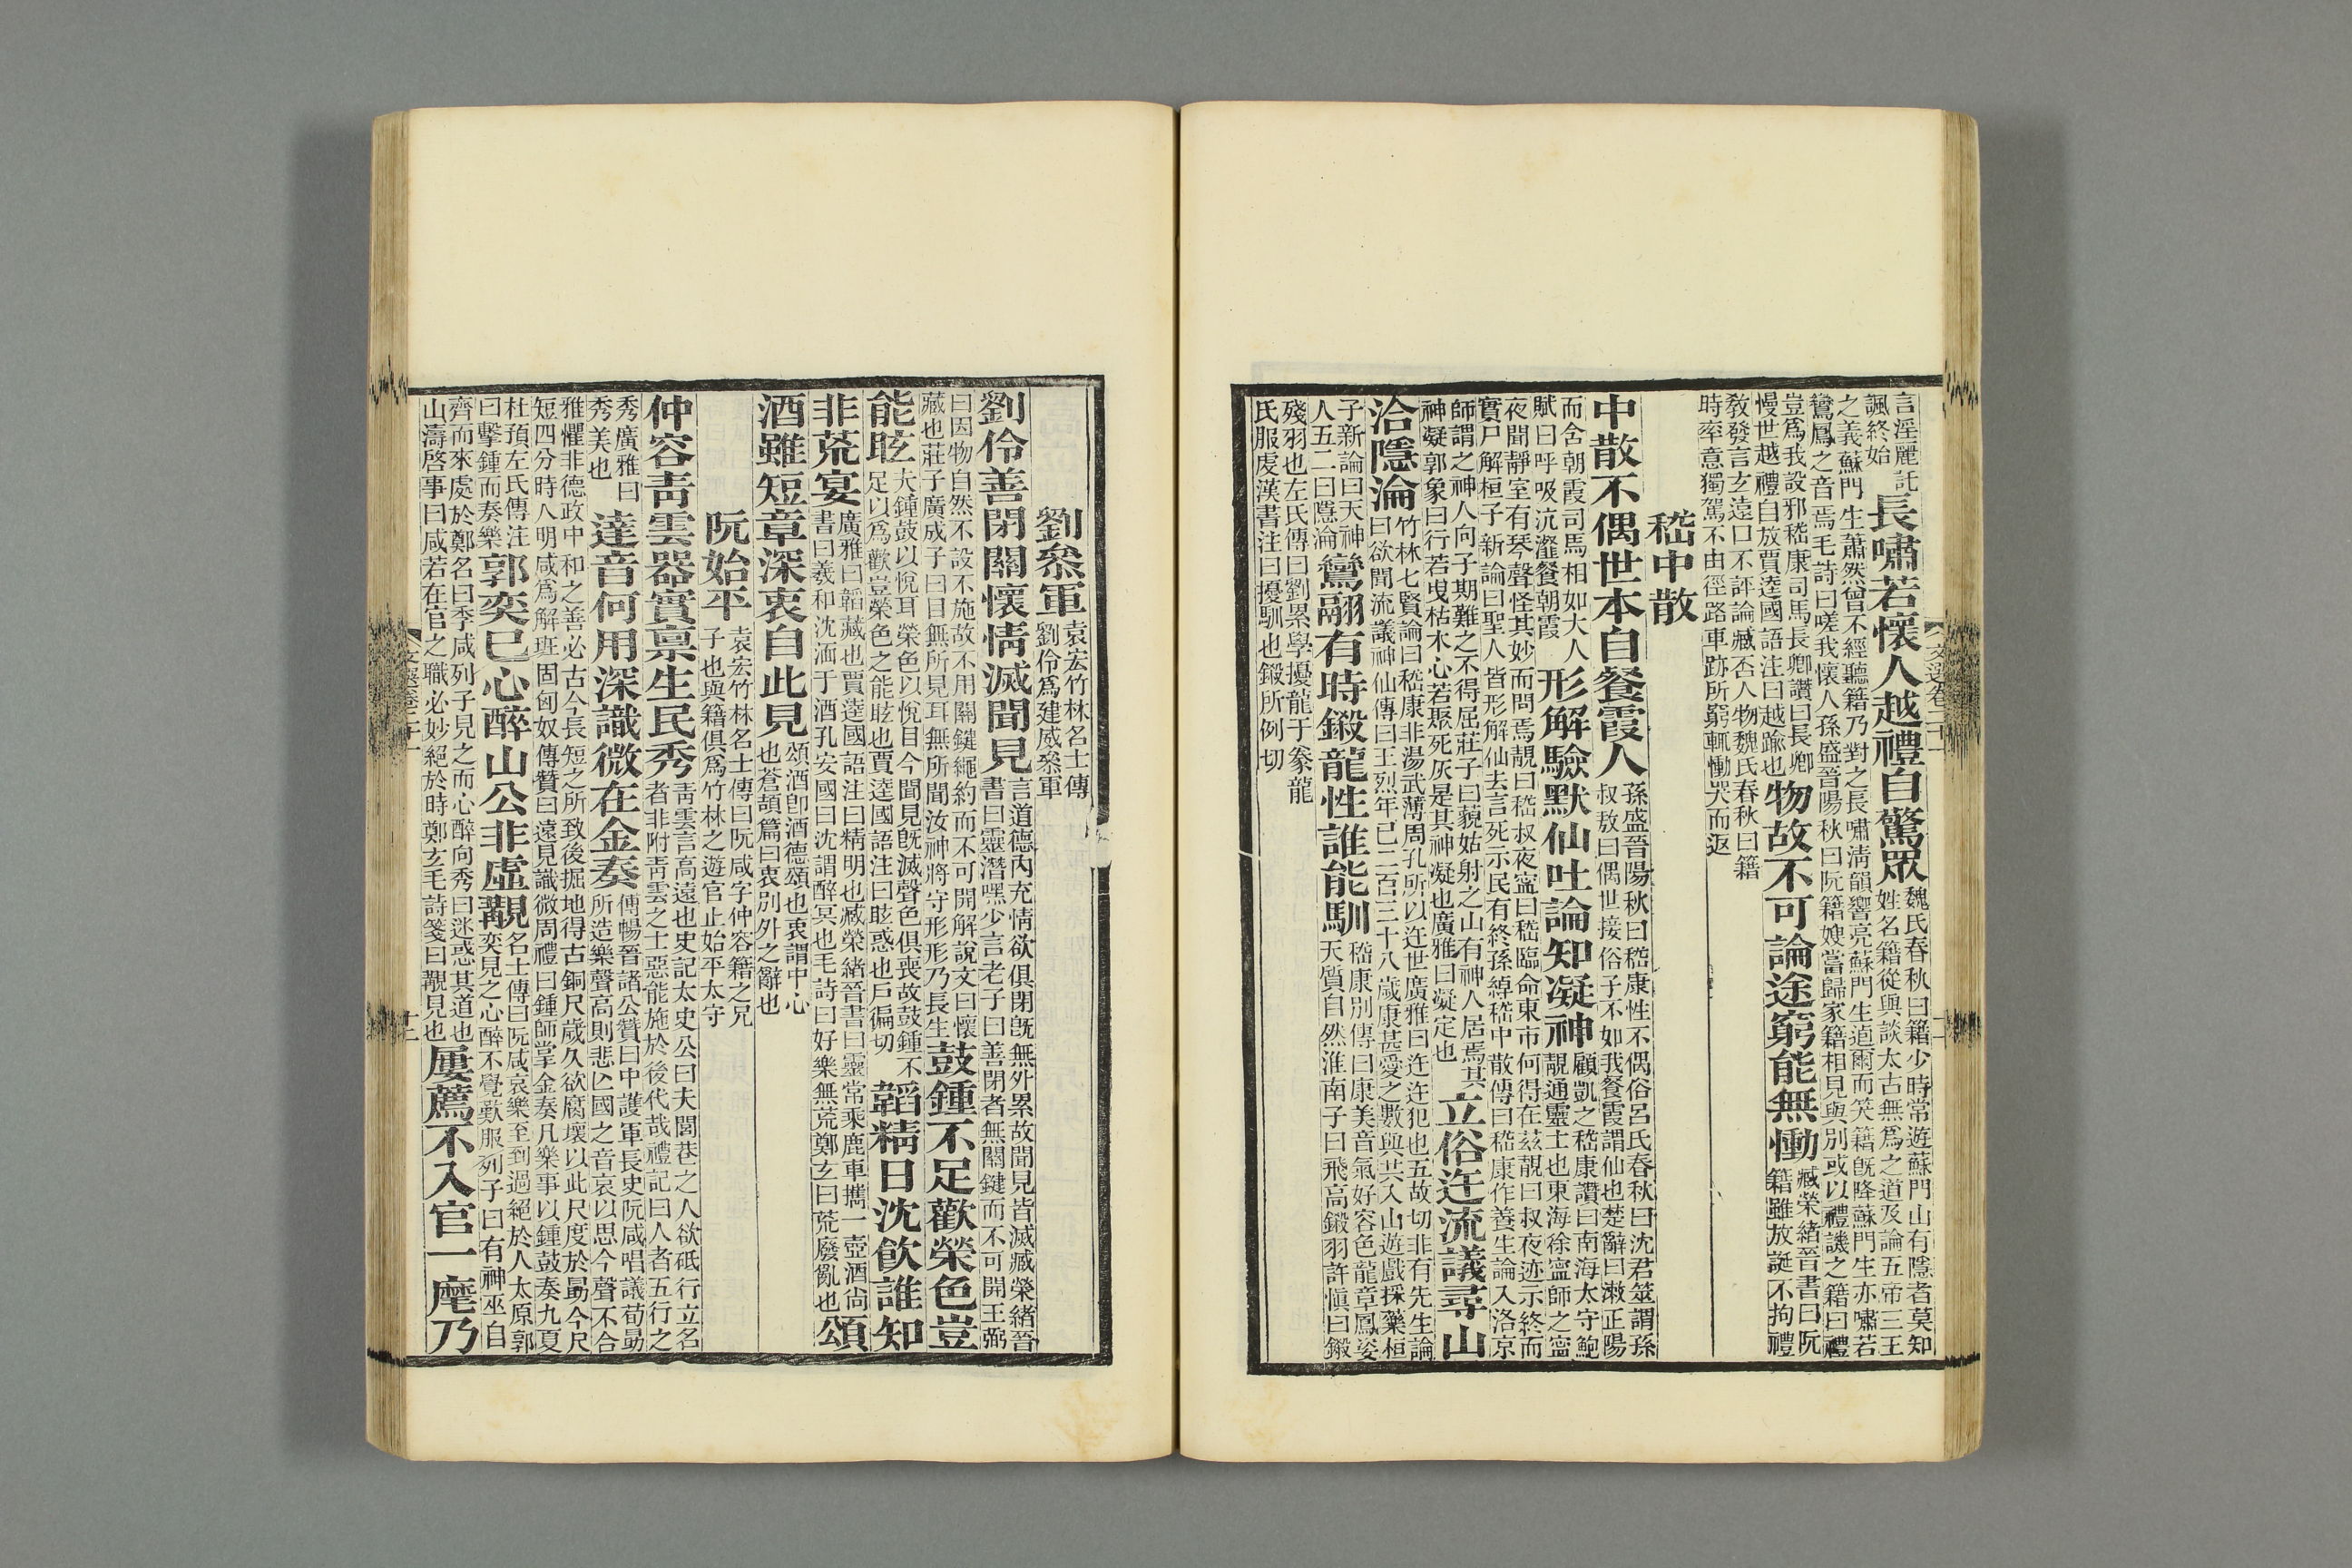 言淫麗託
諷終始
長嘯若懷人越禮自驚眾
魏氏春秋曰籍少時常遊蘇門山有隱者莫知
姓名籍從與談太古無爲之道及論五帝三王
之義蘇門生蕭然曾不經聽籍乃對之長嘯淸韻響亮蘇門生逌爾而笑籍旣降蘇門生亦嘯若
鸞鳳之音焉毛詩曰嗟我懷人孫盛晉陽秋曰阮籍嫂當歸家籍相見與別或以禮譏之籍曰禮
豈爲我設邪嵇康司馬長卿讚曰長卿
慢世越禮自放賈逵國語注曰越踰也
物故不可論途窮能無慟
臧榮緒晉書曰阮
籍雖放誕不拘禮
敎發言玄遠口不評論臧否人物魏氏春秋曰籍
時率意獨駕不由徑路車跡所窮輒慟哭而返
嵇中散
中散不偶世本自餐霞人
孫盛晉陽秋曰嵇康性不偶俗呂氏春秋曰沈君筮謂孫
叔敖曰偶世接俗子不如我餐霞謂仙也楚辭曰漱正陽
而含朝霞司馬相如大人
賦曰呼吸沆瀣餐朝霞
形解驗默仙吐論知凝神
顧凱之嵇康讚曰南海太守鮑
靚通靈士也東海徐寍師之寍
夜聞靜室有琴聲怪其妙而問焉靚曰嵇叔夜寍曰嵇臨命東市何得在茲靚曰叔夜迹示終而
實尸解桓子新論曰聖人皆形解仙去言死示民有終孫綽嵇中散傳曰嵇康作養生論入洛京
師謂之神人向子期難之不得屈莊子曰藐姑射之山有神人居焉其
神凝郭象曰行若曳枯木心若聚死灰是其神凝也廣雅曰凝定也
立俗迕流議尋山
洽隱淪
竹林七賢論曰嵇康非湯武薄周孔所以迕世廣雅曰迕迕犯也五故切非有先生論
曰欲聞流議神仙傳曰王烈年已二百三十八歲康甚愛之數與共入山遊戲採藥桓
子新論曰天神
人五二曰隱淪
鸞翮有時鎩龍性誰能馴
嵇康別傳曰康美音氣好容色龍章鳳姿
天質自然淮南子曰飛高鎩羽許愼曰鎩
殘羽也左氏傳曰劉累學擾龍于豢龍
氏服虔漢書注曰擾馴也鎩所例切
劉叅軍
袁宏竹林名士傳
劉伶爲建威叅軍
劉伶善閉關懷情滅聞見
言道德內充情欲俱閉旣無外累故聞見皆滅臧榮緒晉
書曰靈潛嘿少言老子曰善閉者無關鍵而不可開王弼
曰因物自然不設不施故不用關鍵繩約而不可開解說文曰懷
藏也莊子廣成子曰目無所見耳無所聞汝神將守形形乃長生
鼓鍾不足歡榮色豈
能眩
夫鍾鼓以悅耳榮色以悅目今聞見旣滅聲色俱喪故鼓鍾不
足以爲歡豈榮色之能眩也賈逵國語注曰眩惑也戶徧切
韜精日沈飮誰知
非荒宴
廣雅曰韜藏也賈逵國語注曰精明也臧榮緒晉書曰靈常乘鹿車攜一壺酒尙
書曰羲和沈湎于酒孔安國曰沈謂醉冥也毛詩曰好樂無荒鄭玄曰荒廢亂也
頌
酒雖短章深衷自此見
頌酒卽酒德頌也衷謂中心
也蒼頡篇曰衷別外之辭也
阮始平
袁宏竹林名士傳曰阮咸字仲容籍之兄
子也與籍俱爲竹林之遊官止始平太守
仲容靑雲器實禀生民秀
靑雲言高遠也史記太史公曰夫閭巷之人欲砥行立名
者非附靑雲之士惡能施於後代哉禮記曰人者五行之
秀廣雅曰
秀美也
達音何用深識微在金奏
傅暢晉諸公贊曰中護軍長史阮咸唱議荀勗
所造樂聲高則悲亾國之音哀以思今聲不合
雅懼非德政中和之善必古今長短之所致後掘地得古銅尺歲久欲腐壞以此尺度於勗今尺
短四分時人明咸爲解班固匈奴傳贊曰遠見識微周禮曰鍾師掌金奏凡樂事以鍾鼓奏九夏
杜預左氏傳注
曰擊鍾而奏樂
郭奕已心醉山公非虛覯
名士傳曰阮咸哀樂至到過絕於人太原郭
奕見之心醉不覺歎服列子曰有神巫自
齊而來處於鄭名曰季咸列子見之而心醉向秀曰迷惑其道也
山濤啓事曰咸若在官之職必妙絕於時鄭玄毛詩箋曰覯見也
屢薦不入官一麾乃